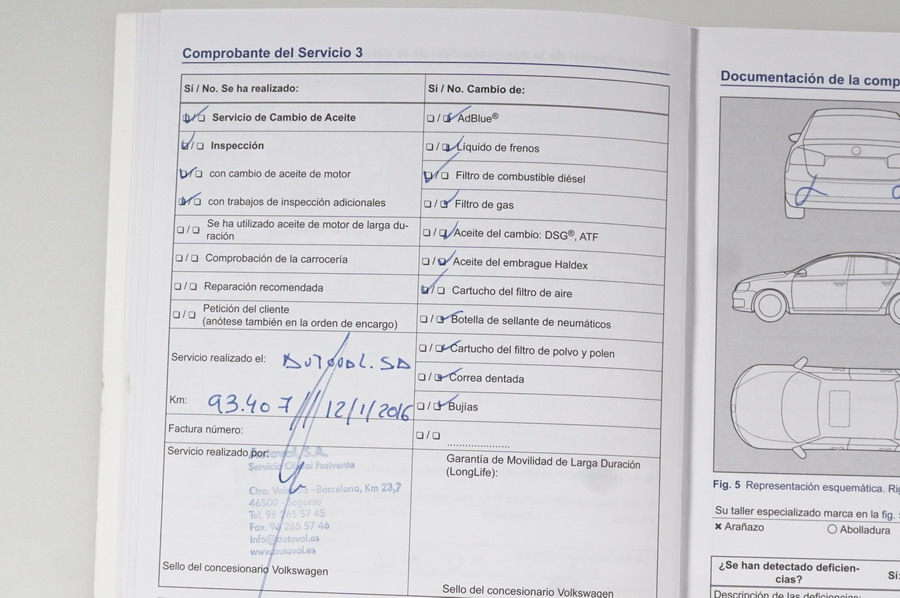 Comprobante del Servicio 3
Sí / No. Se ha realizado:
❏/❏ Servicio de Cambio de Aceite
❏/❏ Inspección
❏/❏ con cambio de aceite de motor
❏/❏ con trabajos de inspección adicionales
❏/❏ Se ha utilizado aceite de motor de larga du-
ración
❏/❏ Comprobación de la carrocería
❏/❏ Reparación recomendada
❏/❏ Petición del cliente
(anótese también en la orden de encargo)
Servicio realizado el: AUTOVAL. SA
Km: 93.407 /// 12/1/2016
Factura número:
Servicio realizado por:
S.A.
Servicio Oficial Postventa
Ctra. –Barcelona, Km 23,7
46500 - Sagunto
Tel. 96 265 57 45
Fax. 96 265 57 46
info@autoval.es
www.autoval.es
Sello del concesionario Volkswagen
Sí / No. Cambio de:
❏/❏ AdBlue®
❏/❏ Líquido de frenos
❏/❏ Filtro de combustible diésel
❏/❏ Filtro de gas
❏/❏ Aceite del cambio: DSG®, ATF
❏/❏ Aceite del embrague Haldex
❏/❏ Cartucho del filtro de aire
❏/❏ Botella de sellante de neumáticos
❏/❏ Cartucho del filtro de polvo y polen
❏/❏ Correa dentada
❏/❏ Bujías
❏/❏ ......................
Garantía de Movilidad de Larga Duración
(LongLife):
Sello del concesionario Volkswagen
Documentación de la comp
Fig. 5 Representación esquemática.
Su taller especializado marca en la fig.
✕ Arañazo ○ Abolladura
¿Se han detectado deficien-
cias? Sí:
Descripción de las deficiencias: